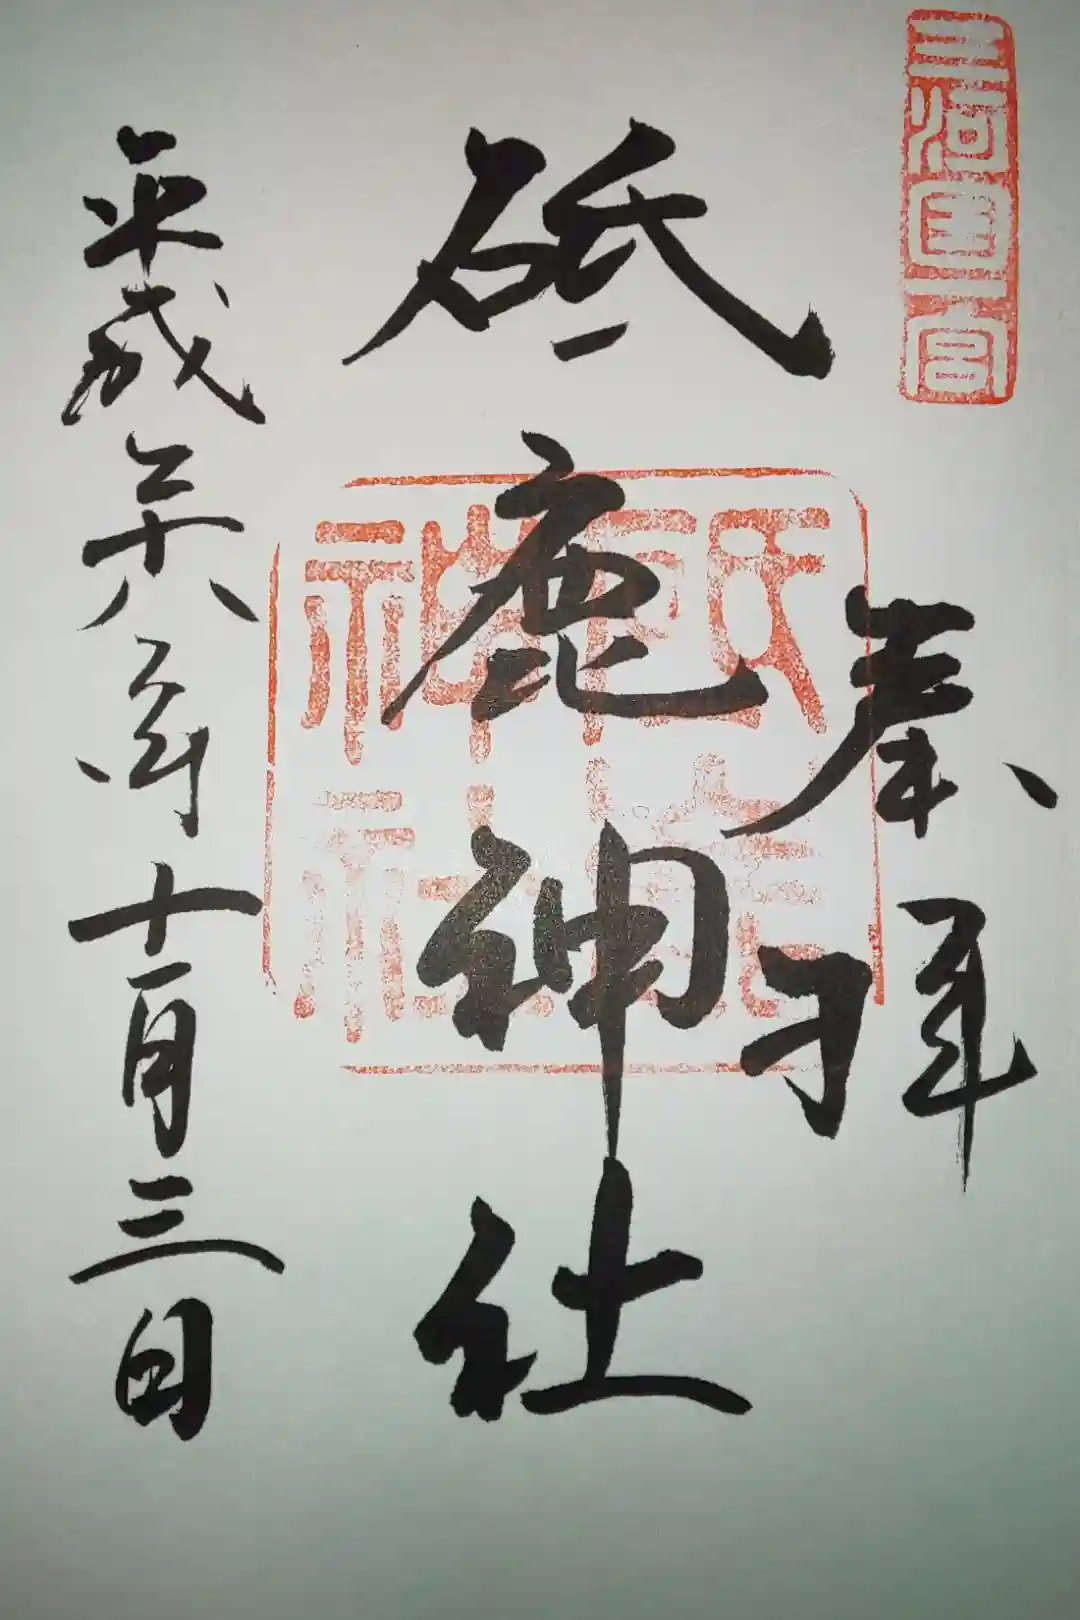 三河国一宮
奉拝
砥鹿神社
砥鹿神社
平成廿六年十月三日